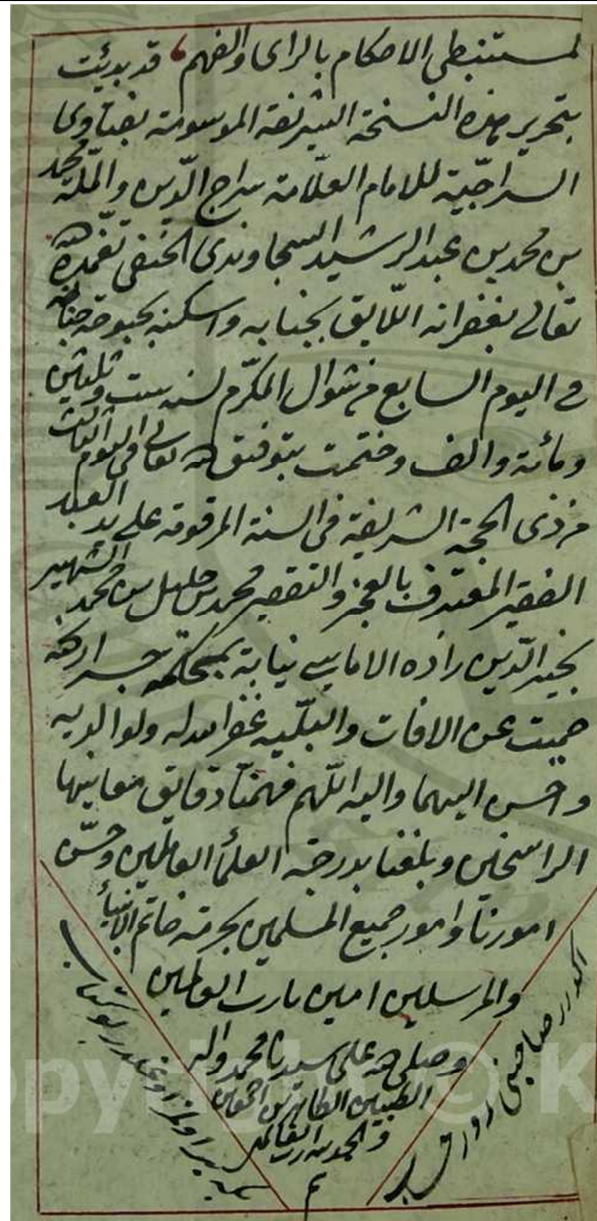 لمستنبطى الاحكام بالراى والفهم قد بدئت
بتحرير هذه النسخة الشريفة الموسومة بفتاوى
السراجية للامام العلامة سراج الدين والملة محمد
بن محمد بن عبد الرشيد السجاوندى الحنفى تغمده الله
تعالى بغفرانه اللايق بجنابه واسكنه بحبوحة جنانه
فى اليوم السابع من شوال المكرم لسنة ست وثلثين
ومائة والف وختمت بتوفيق الله تعالى فى اليوم الثالث
من ذى الحجة الشريفة فى السنة المرقومة على يد العبد
الفقير المعترف بالعجز والتقصير محمد بن خليل بن محمد الشهير
بخير الدين زاده الاماسى نيابة بمحكمة
حميت عن الافات والبلية غفر الله له ولوالديه
واحسن اليهما واليه اللهم فهمنا دقايق معانيها
الراسخين وبلغنا بدرجة العلماء العاملين وحسن
امورنا وامور جميع المسلمين بحرمة خاتم الانبياء
والمرسلين امين يا رب العالمين
وصلى الله على سيدنا محمد واله
الطيبين الطاهرين اجمعين
والحمد لله رب العالمين
م